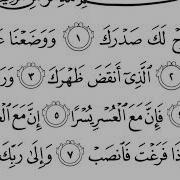 ح لَكَ صَدْرَكَ ﴿١﴾ وَوَضَعْنَا عَ
﴿٢﴾ الَّذِي أَنقَضَ ظَهْرَكَ ﴿٣﴾ وَرَ
فَإِنَّ مَعَ الْعُسْرِ يُسْرًا ﴿٥﴾ إِنَّ مَعَ الْ
ذَا فَرَغْتَ فَانصَبْ ﴿٧﴾ وَإِلَىٰ رَبِّكَ